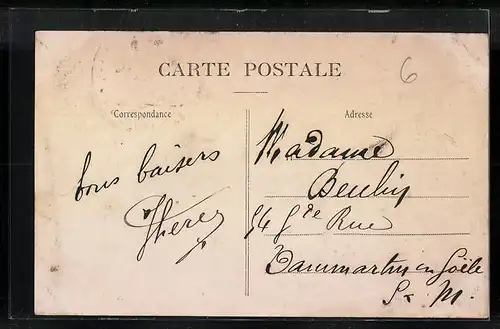 CARTE POSTALE
6
Correspondance
bons baisers
Adresse
Madame
54 Gde Rue
Dammartin en Goële
S. M.